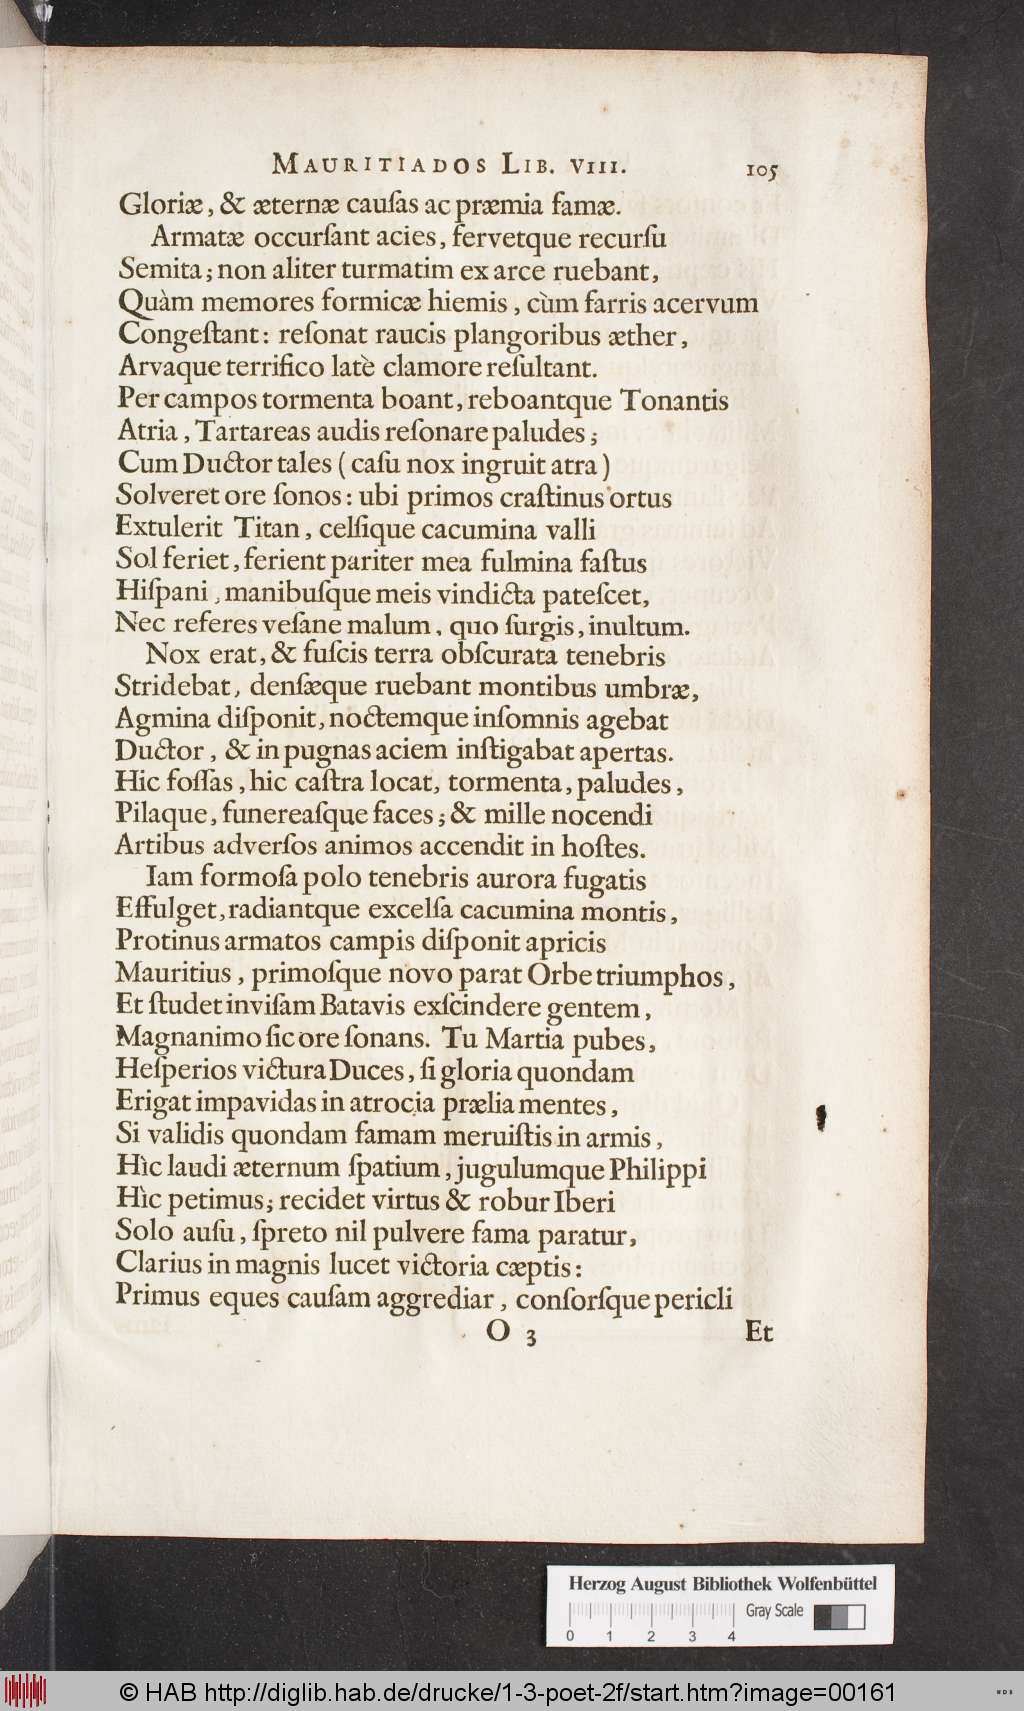 MAURITIADOS LIB. VIII. 105
Gloriæ, & æternæ cauſas ac præmia famæ.
Armatæ occurſant acies, fervetque recurſu
Semita; non aliter turmatim ex arce ruebant,
Quàm memores formicæ hiemis, cùm farris acervum
Congeſtant: reſonat raucis plangoribus æther,
Arvaque terrifico latè clamore reſultant.
Per campos tormenta boant, reboantque Tonantis
Atria, Tartareas audis reſonare paludes;
Cum Ductor tales (caſu nox ingruit atra)
Solveret ore ſonos: ubi primos craſtinus ortus
Extulerit Titan, celſique cacumina valli
Sol feriet, ferient pariter mea fulmina faſtus
Hiſpani, manibuſque meis vindicta pateſcet,
Nec referes veſane malum, quo ſurgis, inultum.
Nox erat, & fuſcis terra obſcurata tenebris
Stridebat, denſæque ruebant montibus umbræ,
Agmina diſponit, noctemque inſomnis agebat
Ductor, & in pugnas aciem inſtigabat apertas.
Hic foſſas, hic caſtra locat, tormenta, paludes,
Pilaque, funereaſque faces; & mille nocendi
Artibus adverſos animos accendit in hoſtes.
Iam formoſa polo tenebris aurora fugatis
Effulget, radiantque excelſa cacumina montis,
Protinus armatos campis diſponit apricis
Mauritius, primoſque novo parat Orbe triumphos,
Et ſtudet inviſam Batavis exſcindere gentem,
Magnanimo ſic ore ſonans. Tu Martia pubes,
Heſperios victura Duces, ſi gloria quondam
Erigat impavidas in atrocia prælia mentes,
Si validis quondam famam meruiſtis in armis,
Hìc laudi æternum ſpatium, jugulumque Philippi
Hìc petimus; recidet virtus & robur Iberi
Solo auſu, ſpreto nil pulvere fama paratur,
Clarius in magnis lucet victoria cæptis:
Primus eques cauſam aggrediar, conſorſque pericli
O 3 Et
Herzog August Bibliothek Wolfenbüttel
Gray Scale
0 1 2 3 4
© HAB http://diglib.hab.de/drucke/1-3-poet-2f/start.htm?image=00161
WDB